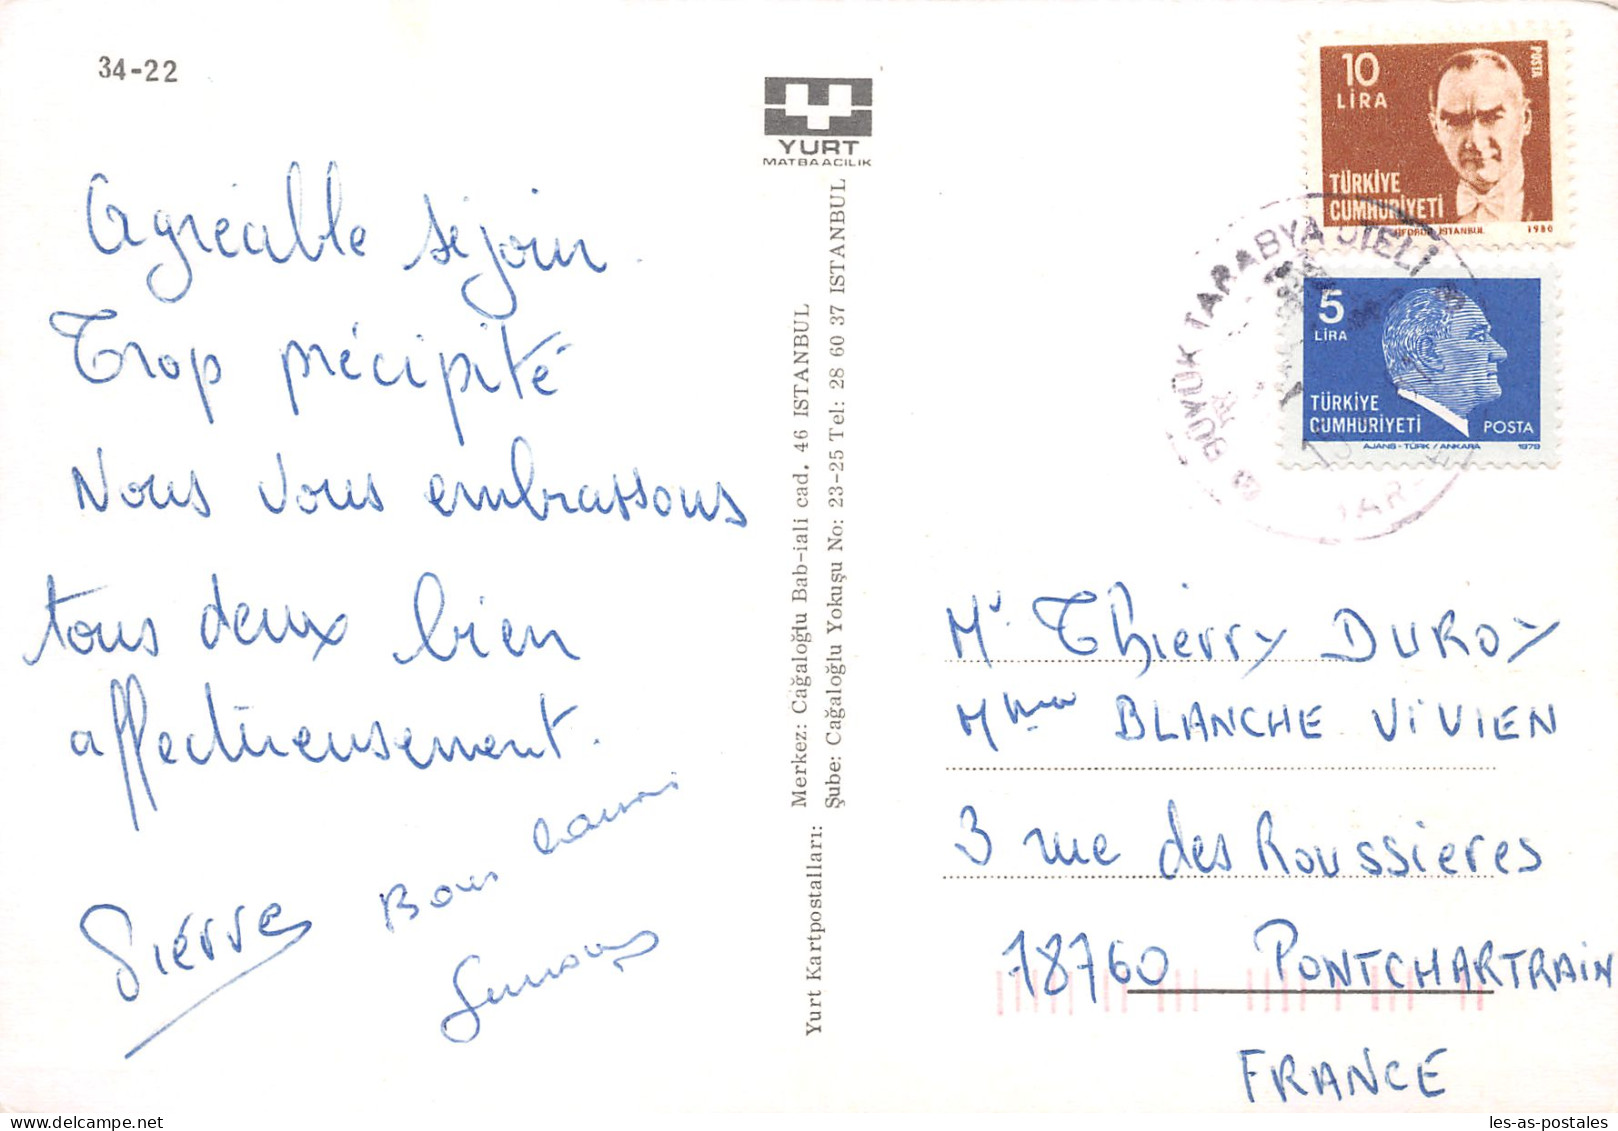 34-22
YURT
MATBAACILIK
Agréable séjour.
Trop précipité
Nous vous embrassons
tous deux bien
affectueusement.
Bons baisers
Pierre
Yurt Kartpostalları:
Merkez: Cağaloğlu Bab-iali cad. 46 ISTANBUL
Şube: Cağaloğlu Yokuşu No: 23-25 Tel: 28 60 37 ISTANBUL
10
LİRA
POSTA
TÜRKİYE
CUMHURİYETİ
İSTANBUL
1980
BÜYÜK TARABYA OTELİ
5
LİRA
TÜRKİYE
CUMHURİYETİ
POSTA
AJANS-TÜRK / ANKARA
1979
Mr Thierry DUROY
Mme BLANCHE ViViEN
3 rue des Roussieres
78760 PONTCHARTRAiN
FRANCE
les-as-postales